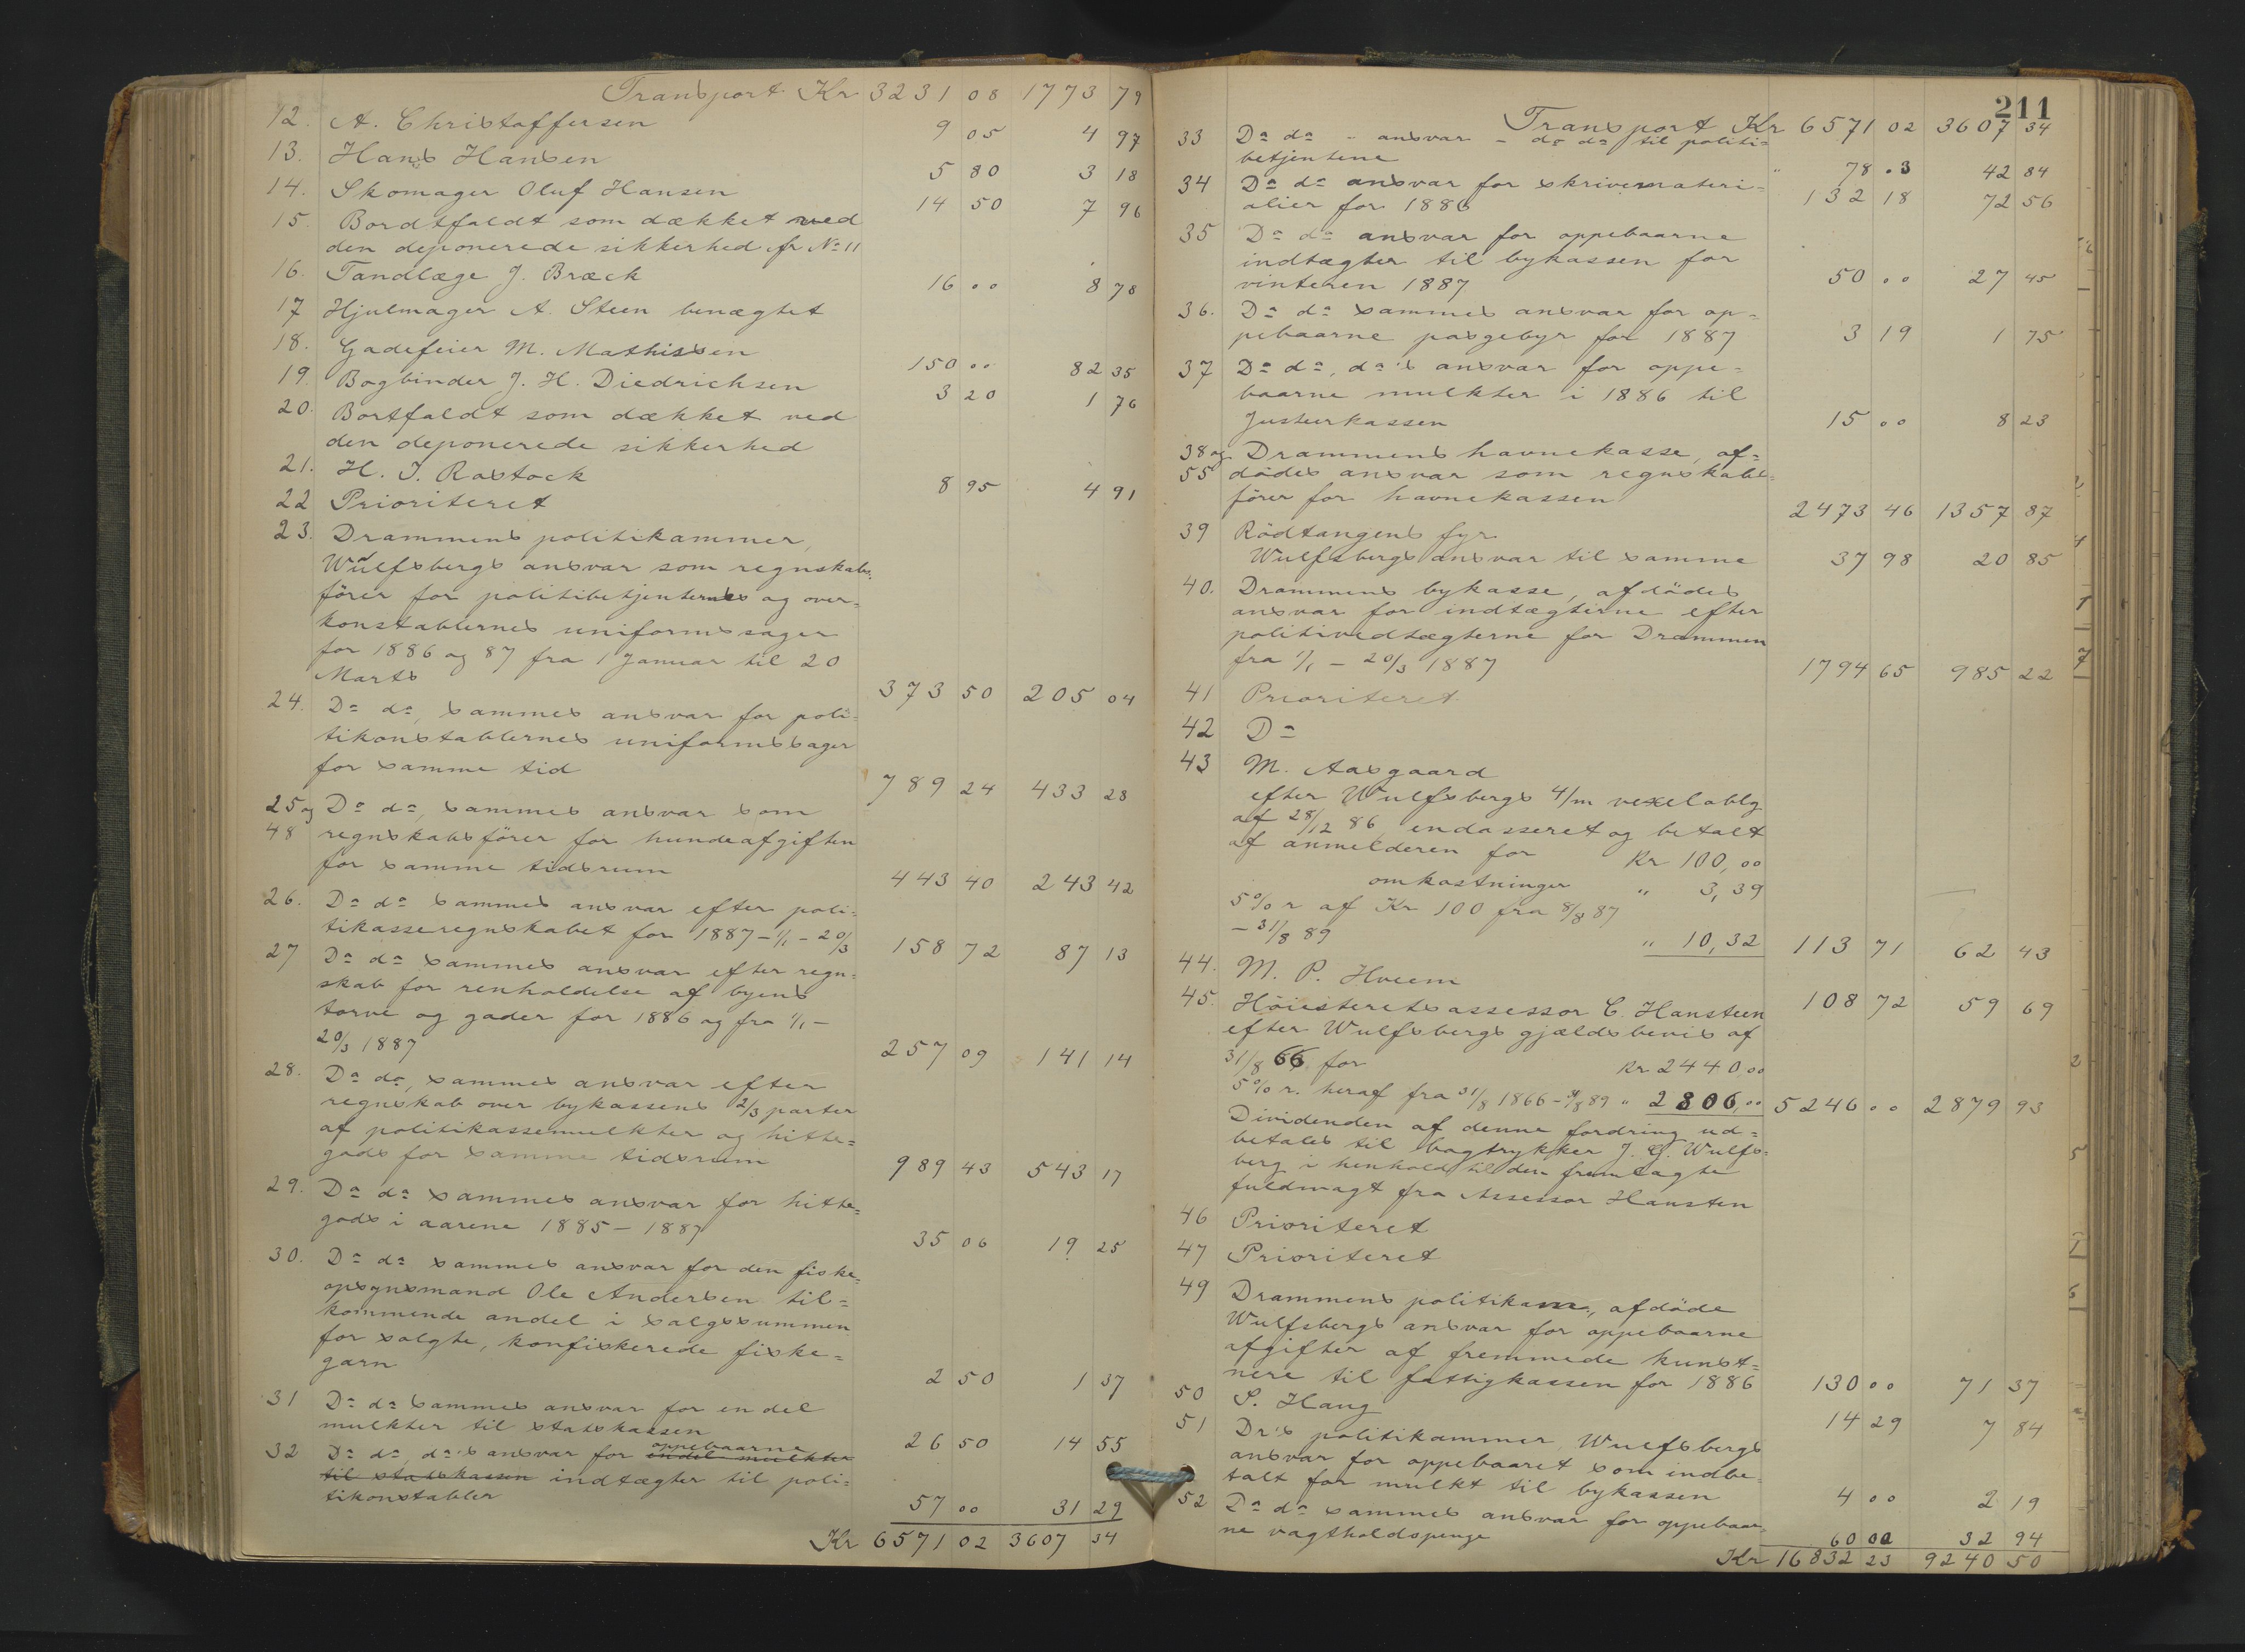 Transport Kr 3231 08 1773 79
12. A. Christoffersen 9 05 4 97
13. Hans Hansen 5 80 3 18
14. Skomager Oluf Hansen 14 50 7 96
15. Bordtfaldt som dækket ved
den deponerede sikkerhed fr No 11
16. Tandlæge J. Bræck 16 00 8 78
17 Hjulmager A. Steen benægtet
18. Gadefeier M. Mathissen 150 00 82 35
19. Bogbinder J. H. Diedrichsen 3 20 1 76
20. Bortfaldt som dækket ved
den deponerede sikkerhed
21. H. J. Rastock 8 95 4 91
22 Prioriteret
23. Drammens politikammer,
Wulfsbergs ansvar som regnskabs-
fører for politibetjenternes og over-
konstablernes uniformssager
for 1886 og 87 fra 1 Januar til 20
Marts 373 50 205 04
24. Do do, sammes ansvar for poli-
tikonstablernes uniformssager
for samme tid 789 24 433 28
25 og Do do, sammes ansvar som
48 regnskabsfører for hundeafgiften
for samme tidsrum 443 40 243 42
26. Do do sammes ansvar efter poli-
tikasseregnskabet for 1887 - 1/1 - 20/3 158 72 87 13
27 Do do sammes ansvar efter regn-
skab for renholdelse af byens
torve og gader for 1886 og fra 1/1 -
20/3 1887 257 09 141 14
28. Do do, sammes ansvar efter
regnskab over bykassens 2/3 parter
af politikassemulkter og hitte=
gods for samme tidsrum 989 43 543 17
29. Do do sammes ansvar for hitte=
gods i aarene 1885 - 1887 35 06 19 25
30. Do do sammes ansvar for den fiske-
opsynsmand Ole Andersen til=
kommende andel i salgssummen
for solgte, konfiskerede fiske=
garn 2 50 1 37
31 Do do sammes ansvar for en del
mulkter til statskassen 26 50 14 55
32 Do do, do's ansvar for oppebaarne endel mulkter
til statskassen indtægter til poli=
tikonstabler 57 00 31 29
Kr 6571 02 3607 34
211
Transport Kr 6571 02 3607 34
33 Do do - ansvar - do do til politi=
betjentene " 78 03 42 84
34 Do do ansvar for skrivemateri=
alier for 1886 132 18 72 56
35 Do do ansvar for oppebaarne
indtægter til bykassen for
vinteren 1887 50 00 27 45
36. Do do sammes ansvar for op=
pebaarne pasgebyr for 1887 3 19 1 75
37 Do do, do's ansvar for oppe=
baarne mulkter i 1886 til
Justerkassen 15 00 8 23
38 og Drammens havnekasse, af=
55 dødes ansvar som regnskabs-
fører for havnekassen 2473 46 1357 87
39 Rödtangens fyr
Wulfsbergs ansvar til samme 37 98 20 85
40. Drammens bykasse, afdödes
ansvar for indtægterne efter
politivedtægterne for Drammen
fra 1/1 - 20/3 1887 1794 65 985 22
41 Prioriteret
42 Do
43 M. Aasgaard
efter Wulfsbergs 4/m vexeloblg
af 28/12 86, endosseret og betalt
af anmelderen for Kr 100,00
omkostninger " 3,39
5% r af Kr 100 fra 8/8 87
- 31/8 89 " 10,32 113 71 62 43
44. M. P. Hveem 108 72 59 69
45. Höiesteretsassessor C. Hansteen
efter Wulfsbergs gjældsbevis af
31/8 66 for Kr 2440 00
5% r. heraf fra 31/8 1866 - 31/8 89 " 2806,00 5246 00 2879 93
Dividenden af denne fordring ud=
betales til bogtrykker J. G. Wulfs-
berg i henhold til den fremlagte
fuldmagt fra Assessor Hansten
46 Prioriteret
47 Prioriteret
49 Drammens politikam., afdöde
Wulfsbergs ansvar for oppebaarne
afgifter af fremmede kunst=
nere til fattigkassen for 1886 130 00 71 37
50 S. Haug 14 29 7 84
51 Dr's politikammer, Wulfsbergs
ansvar for oppebaaret som indbe-
talt for mulkt til bykassen 4 00 2 19
52 Do do sammes ansvar for oppebaar-
ne vagtholdspenge 60 00 32 94
Kr 16832 23 9240 50